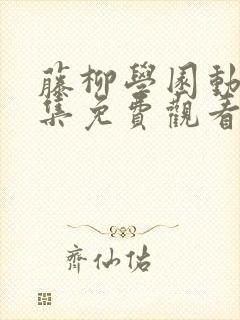 藤柳學園動
集免費觀看
齊仙佑